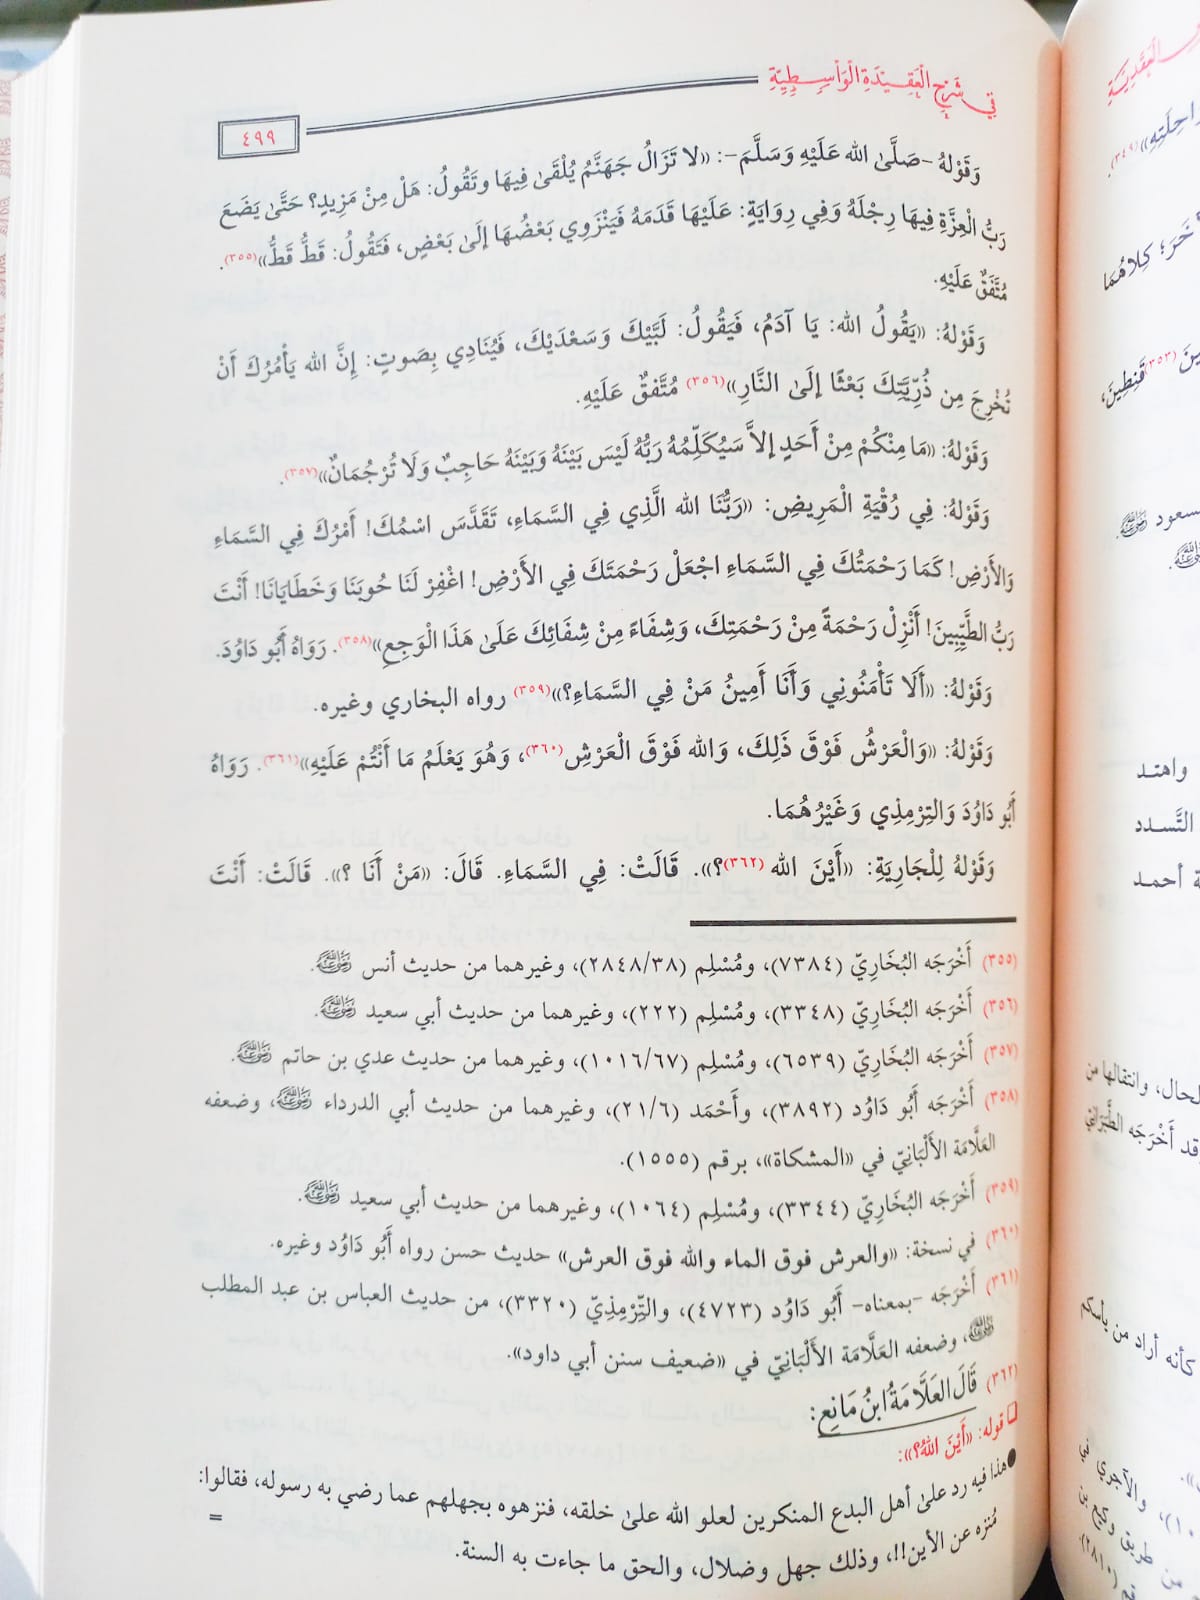 في شَرْحِ الْعَقِيدَةِ الْوَاسِطِيَّةِ
٤٩٩
وَقَوْلهُ -صَلَّىٰ الله عَلَيْهِ وَسَلَّمَ-: «لا تَزَالُ جَهَنَّمُ يُلْقَىٰ فِيهَا وتَقُولُ: هَلْ مِنْ مَزِيدٍ؟ حَتَّىٰ يَضَعَ
رَبُّ الْعِزَّةِ فِيهَا رِجْلَهُ وَفِي رِوَايَةٍ: عَلَيْهَا قَدَمَهُ فَيَنْزَوِي بَعْضُهَا إلَىٰ بَعْضٍ، فَتَقُولُ: قَطُّ قَطُّ»(٣٥٥).
مُتَّفَقٌ عَلَيْهِ.
وَقَوْلهُ: «يَقُولُ الله: يَا آدَمُ، فَيَقُولُ: لَبَّيْكَ وَسَعْدَيْكَ، فَيُنَادِي بِصَوتٍ: إِنَّ الله يَأْمُرُكَ أَنْ
تُخْرِجَ مِن ذُرِّيَّتِكَ بَعْثًا إلَىٰ النَّارِ»(٣٥٦) مُتَّفقٌ عَلَيْهِ.
وَقَوْلهُ: «مَا مِنْكُمْ مِنْ أَحَدٍ إلاَّ سَيُكَلِّمُهُ رَبُّهُ لَيْسَ بَيْنَهُ وَبَيْنَهُ حَاجِبٌ وَلَا تُرْجُمَانٌ»(٣٥٧).
وَقَوْلهُ: فِي رُقْيَةِ الْمَرِيضِ: «رَبُّنَا الله الَّذِي فِي السَّمَاءِ، تَقَدَّسَ اسْمُكَ! أَمْرُكَ فِي السَّمَاءِ
وَالأَرْضِ! كَمَا رَحْمَتُكَ فِي السَّمَاءِ اجْعَلْ رَحْمَتَكَ فِي الأَرْضِ! اغْفِرْ لَنَا حُوبَنَا وَخَطَايَانَا! أَنْتَ
رَبُّ الطَّيِّبِينَ! أَنْزِلْ رَحْمَةً مِنْ رَحْمَتِكَ، وَشِفَاءً مِنْ شِفَائِكَ عَلَىٰ هَذَا الْوَجِعِ»(٣٥٨). رَوَاهُ أَبُو دَاوُدَ.
وَقَوْلهُ: «أَلَا تَأْمَنُونِي وَأَنَا أَمِينُ مَنْ فِي السَّمَاءِ؟»(٣٥٩) رواه البخاري وغيره.
وَقَوْلهُ: «وَالْعَرْشُ فَوْقَ ذَلِكَ، وَالله فَوْقَ الْعَرْشِ(٣٦٠)، وَهُوَ يَعْلَمُ مَا أَنْتُمْ عَلَيْهِ»(٣٦١). رَوَاهُ
أَبُو دَاوُدَ وَالتِرْمِذِي وَغَيْرُهُمَا.
وَقَوْلهُ لِلْجَارِيَةِ: «أَيْنَ الله (٣٦٢)؟». قَالَتْ: فِي السَّمَاءِ. قَالَ: «مَنْ أَنَا ؟». قَالَتْ: أَنْتَ
(٣٥٥) أَخْرَجَه البُخَارِيّ (٧٣٨٤)، ومُسْلِم (٢٨٤٨/٣٨)، وغيرهما من حديث أنس رضي الله عنه.
(٣٥٦) أَخْرَجَه البُخَارِيّ (٣٣٤٨)، ومُسْلِم (٢٢٢)، وغيرهما من حديث أبي سعيد رضي الله عنه.
(٣٥٧) أَخْرَجَه البُخَارِيّ (٦٥٣٩)، ومُسْلِم (١٠١٦/٦٧)، وغيرهما من حديث عدي بن حاتم رضي الله عنه.
(٣٥٨) أَخْرَجَه أَبُو دَاوُد (٣٨٩٢)، وأَحْمَد (٢١/٦)، وغيرهما من حديث أبي الدرداء رضي الله عنه، وضعفه
العَلَّامَة الأَلْبَانِيّ في «المشكاة»، برقم (١٥٥٥).
(٣٥٩) أَخْرَجَه البُخَارِيّ (٣٣٤٤)، ومُسْلِم (١٠٦٤)، وغيرهما من حديث أبي سعيد رضي الله عنه.
(٣٦٠) في نسخة: «والعرش فوق الماء والله فوق العرش» حديث حسن رواه أَبُو دَاوُد وغيره.
(٣٦١) أَخْرَجَه -بمعناه- أَبُو دَاوُد (٤٧٢٣)، والتِّرْمِذِيّ (٣٣٢٠)، من حديث العباس بن عبد المطلب
رضي الله عنه، وضعفه العَلَّامَة الأَلْبَانِيّ في «ضعيف سنن أبي داود».
(٣٦٢) قَالَ العَلَّامَةُ ابنُ مَانِع:
قوله: «أَيْنَ اللهُ؟»:
● هذا فيه رد علىٰ أهل البدع المنكرين لعلو الله علىٰ خلقه، فنزهوه بجهلهم عما رضي به رسوله، فقالوا:
مُنزه عن الأين!!، وذلك جهل وضلال، والحق ما جاءت به السنة.
=
احِلَتِهِ»(٣٤٩).
آخَرَ؛ كِلاهُمَا
(٣٥٢) قَنِطِينَ،
واهتد
التَّسدد
ة أحمد
لحال، وانتقالها من
قد أَخْرَجَه الطَّبَرَانِيّ
كأنه أراد من بأسكم
والآجري في
من طريق وكيع بن
(٢٨١٠).